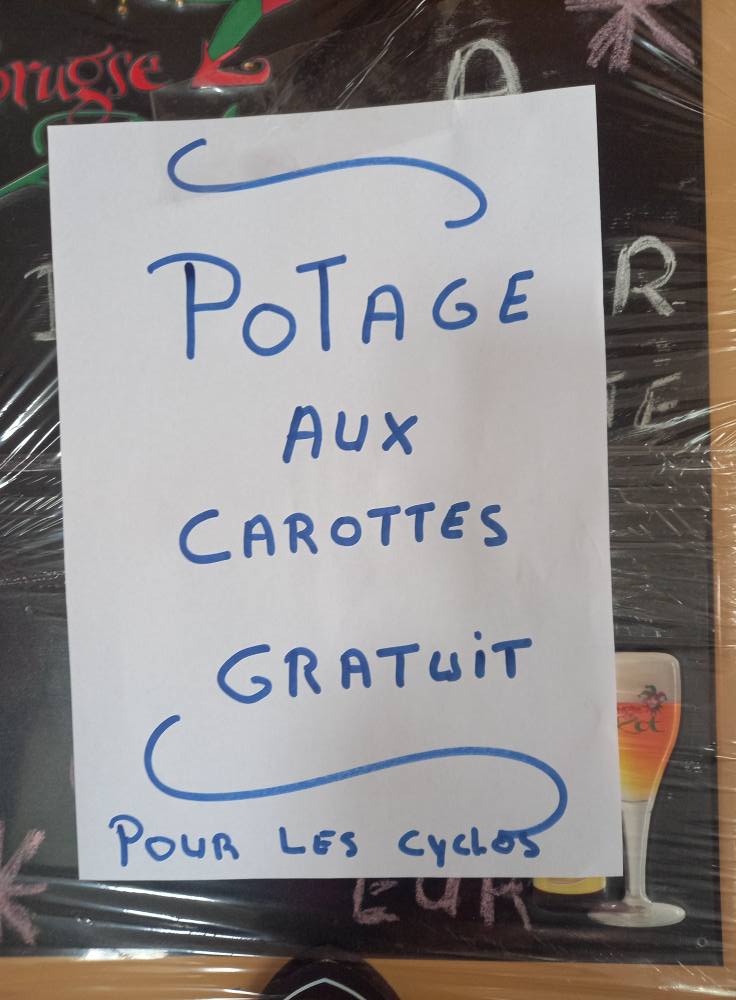 Brugse
A
R
TE
POTAGE
AUX
CAROTTES
GRATUIT
POUR LES CYCLOS
Zot
EUR